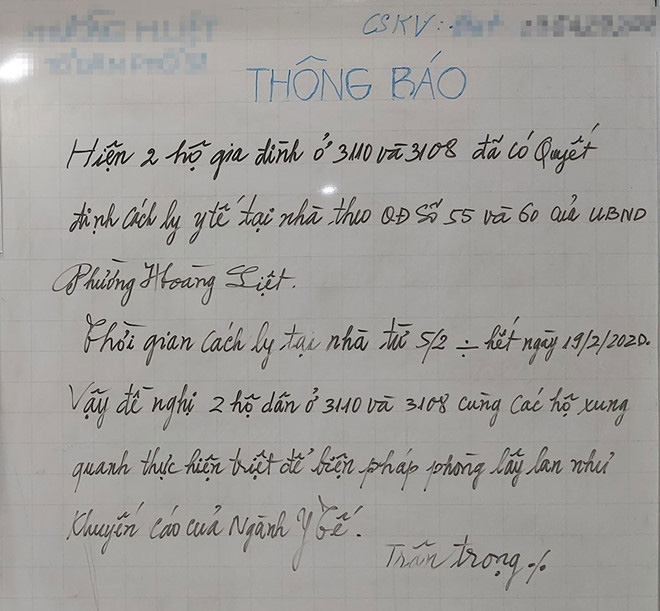 CSKV:
THÔNG BÁO
Hiện 2 hộ gia đình ở 3110 và 3108 đã có Quyết
định cách ly y tế tại nhà theo QĐ số 55 và 60 của UBND
Phường Hoàng Liệt.
Thời gian cách ly tại nhà từ 5/2 ÷ hết ngày 19/2/2020.
Vậy đề nghị 2 hộ dân ở 3110 và 3108 cùng các hộ xung
quanh thực hiện triệt để biện pháp phòng lây lan như
khuyến cáo của Ngành Y tế.
Trân trọng ./.